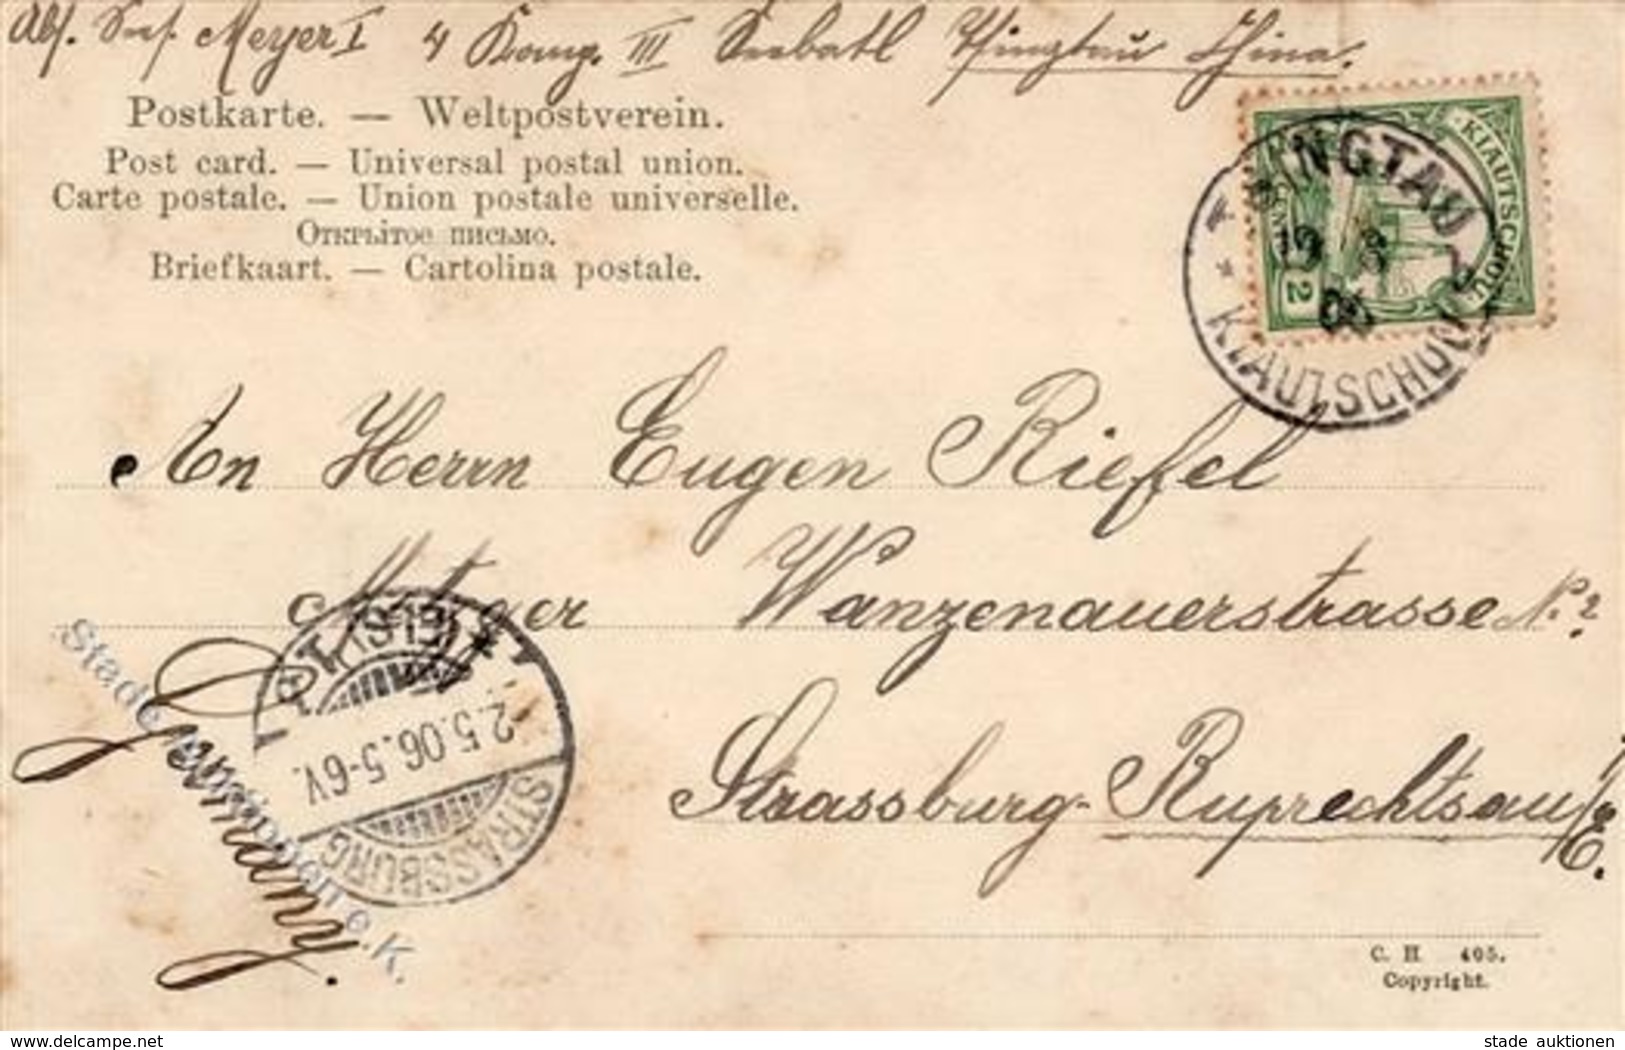 Abs. Sees. Meyer I 4 Komp. III Seebatl Tsingtau China.
Postkarte. — Weltpostverein.
Post card. — Universal postal union.
Carte postale. — Union postale universelle.
Открытое письмо.
Briefkaart. — Cartolina postale.
KIAUTSCHOU
2
TSINGTAU
19 3
06
KIAUTSCHOU
An Herrn Eugen Riefel
Metzger Wanzenauerstrasse N. 2
Strassburg-Ruprechtsau i/E.
Germany.
2.5.06.5-6V.
STRASSBURG
C. H 405.
Copyright.
Stade Auktionen e.K.
www.delcampe.net
stade auktionen